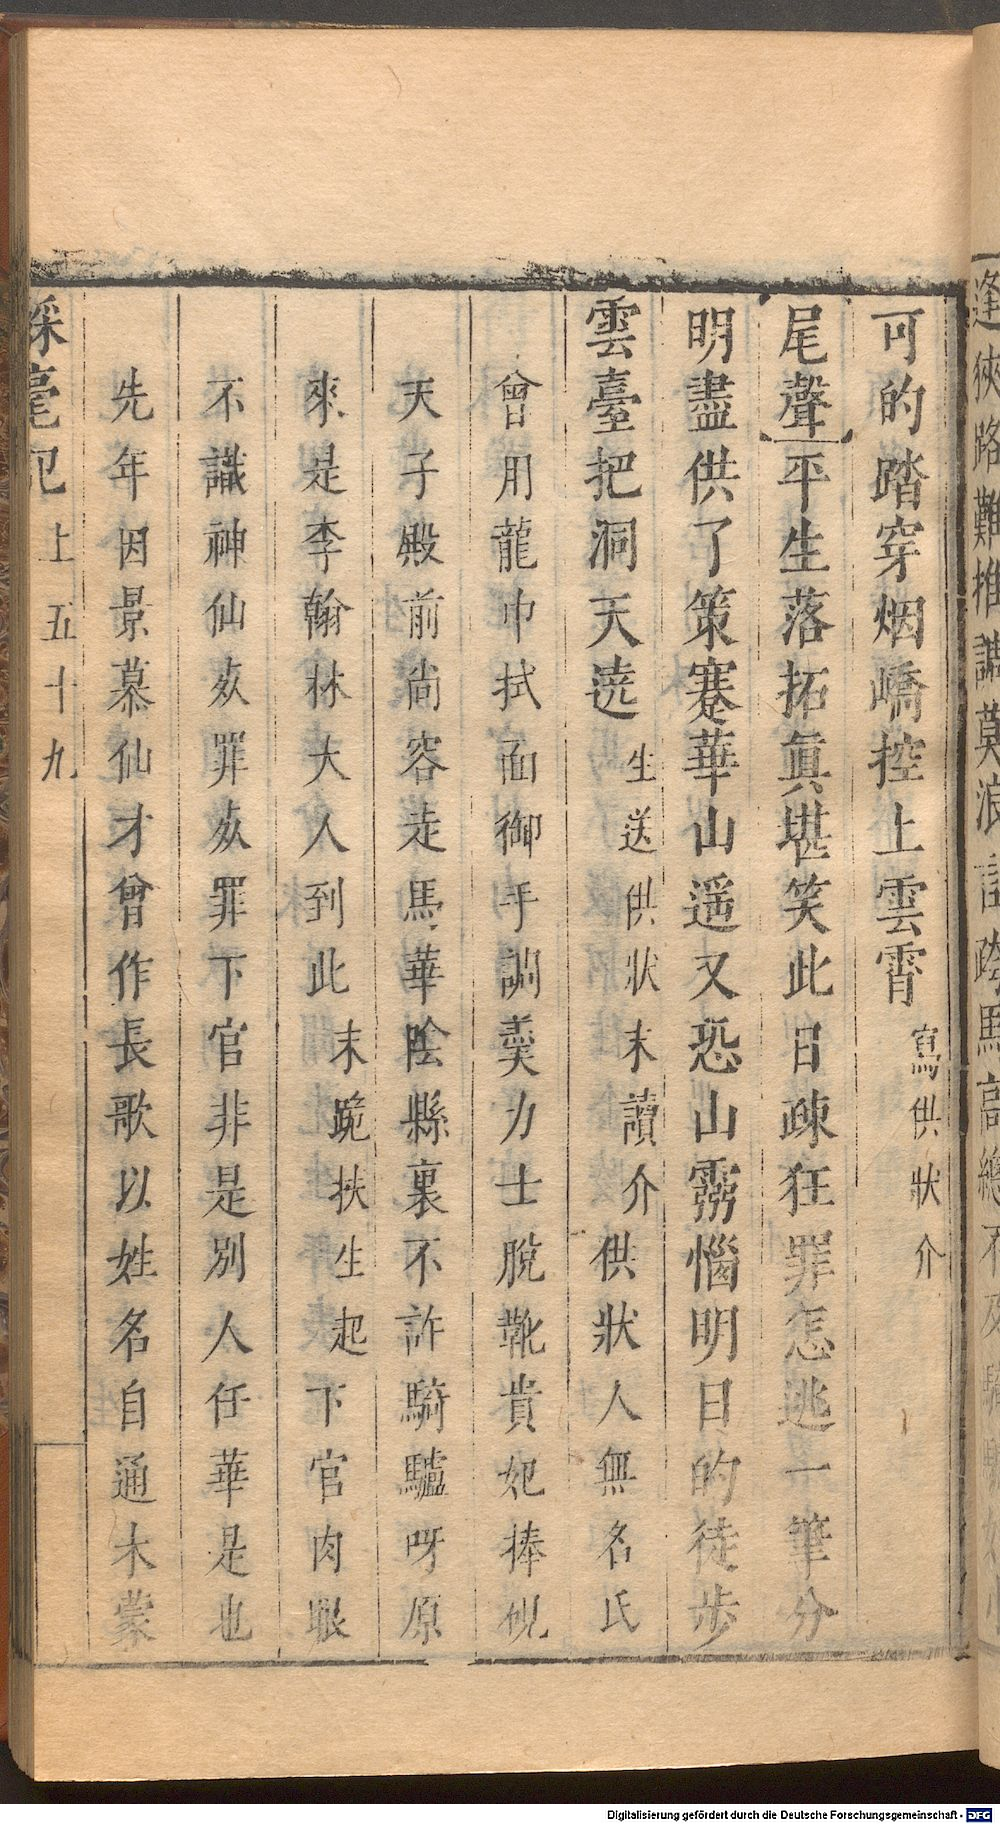 逢狹路難推
莫浪
踏馬高
可的踏穿烟嶠控上雲霄寫供狀介
尾聲平生落拓眞堪笑此日疎狂罪怎逃一筆分
明盡供了策蹇華山遥又恐山霧惱明日的徒步
雲臺把洞天遶生送供狀末讀介供狀人無名氏
曾用龍巾拭面御手調羹力士脫靴貴妃捧硯
天子殿前尚容走馬華陰縣裏不許騎驢呀原
來是李翰林大人到此末跪扶生起下官肉眼
不識神仙㱾罪㱾罪下官非是別人任華是也
先年因景慕仙才曾作長歌以姓名自通未蒙
綵毫記上五十九
Digitalisierung gefördert durch die Deutsche Forschungsgemeinschaft - DFG